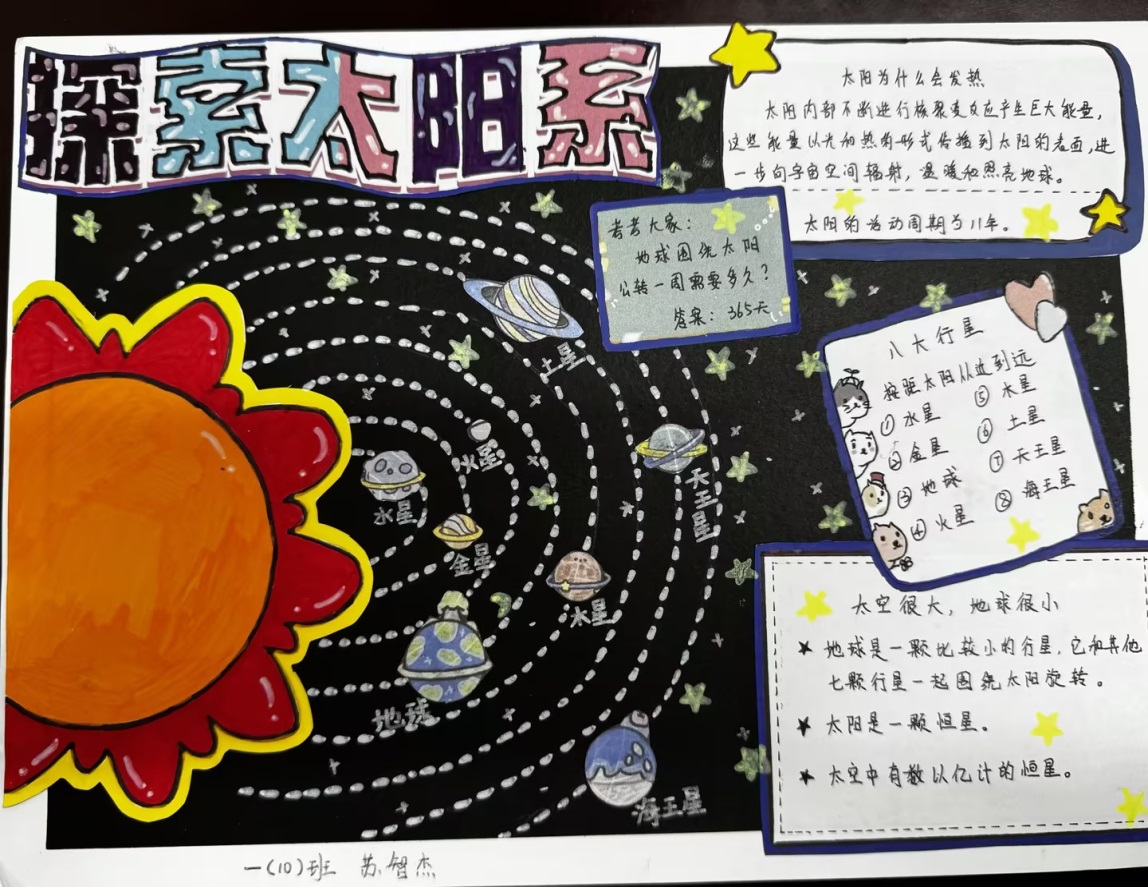 探索太阳系
太阳为什么会发热
太阳内部不断进行核裂变反应产生巨大能量，
这些能量以光和热的形式传播到太阳的表面，进
一步向宇宙空间辐射，温暖和照亮地球。
太阳的活动周期为11年。
考考大家：
地球围绕太阳
公转一周需要多久？
答案：365天
八大行星
按距太阳从近到远
①水星
②金星
③地球
④火星
⑤木星
⑥土星
⑦天王星
⑧海王星
土星
火星
水星
天王星
金星
木星
地球
海王星
太空很大，地球很小
★地球是一颗比较小的行星，它和其他
七颗行星一起围绕太阳旋转。
★太阳是一颗恒星。
★太空中有数以亿计的恒星。
一(10)班 苏智杰